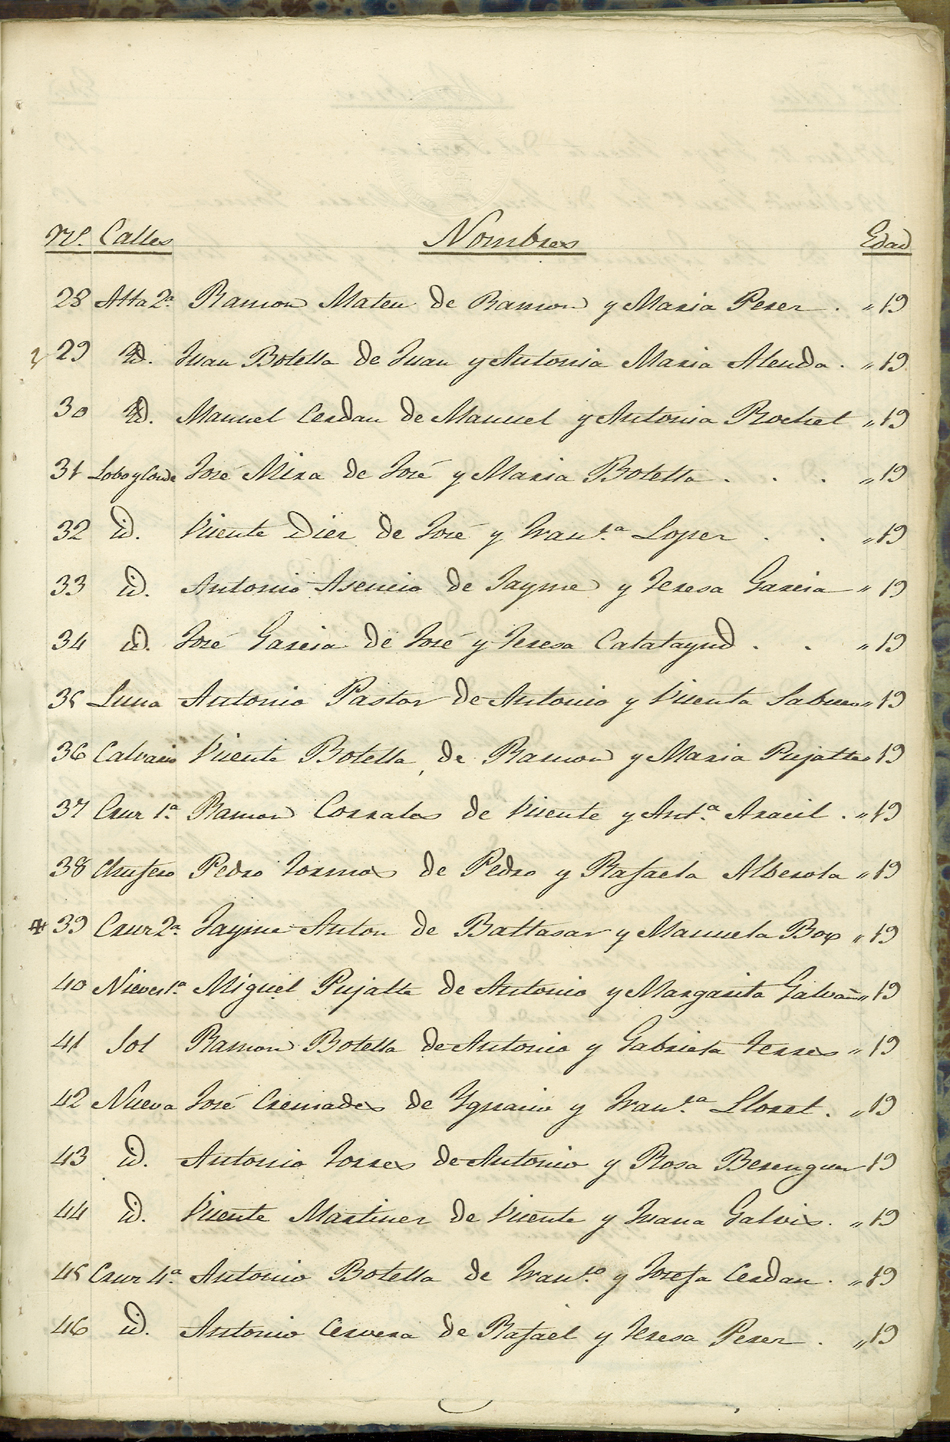 Nº. Calles Nombres Edad
28 Alta 2ª Ramon Mateu de Ramon y Maria Perez . „ 19
29 id. Juan Botella de Juan y Antonia Maria Alenda . „ 19
30 id. Manuel Cerdan de Manuel y Antonia Rochel „ 19
31 Lobo y Conde José Mira de José y Maria Botella . . . „ 19
32 id. Vicente Diez de José y Fran.ca Lopez . . „ 19
33 id. Antonio Asencio de Jayme y Teresa Garcia „ 19
34 id. José Garcia de José y Teresa Calatayud . . „ 19
35 Luna Antonio Pastor de Antonio y Vicenta „ 19
36 Calvario Vicente Botella, de Ramon y Maria Pujalte „ 19
37 Cruz 1ª Ramon Corrales de Vicente y Ant.ª Aracil . „ 19
38 Pedro Tormos de Pedro y Rafaela Alberola „ 19
39 Cruz 2ª. Jayme Anton de Baltasar y Manuela Box „ 19
40 Nieves 1ª. Miguel Pujalte de Antonio y Margarita Galvañ „ 19
41 Sol Ramon Botella de Antonio y Gabriela Torres „ 19
42 Nueva José Cremades de Ygnacio y Fran.ca Lloret . „ 19
43 id. Antonio Torres de Antonio y Rosa Berenguer 19
44 id. Vicente Martinez de Vicente y Juana Galvis . „ 19
45 Cruz 4ª. Antonio Botella de Fran.co y Josefa Cerdan . „ 19
46 id. Antonio Cervera de Rafael y Teresa Perez . „ 19